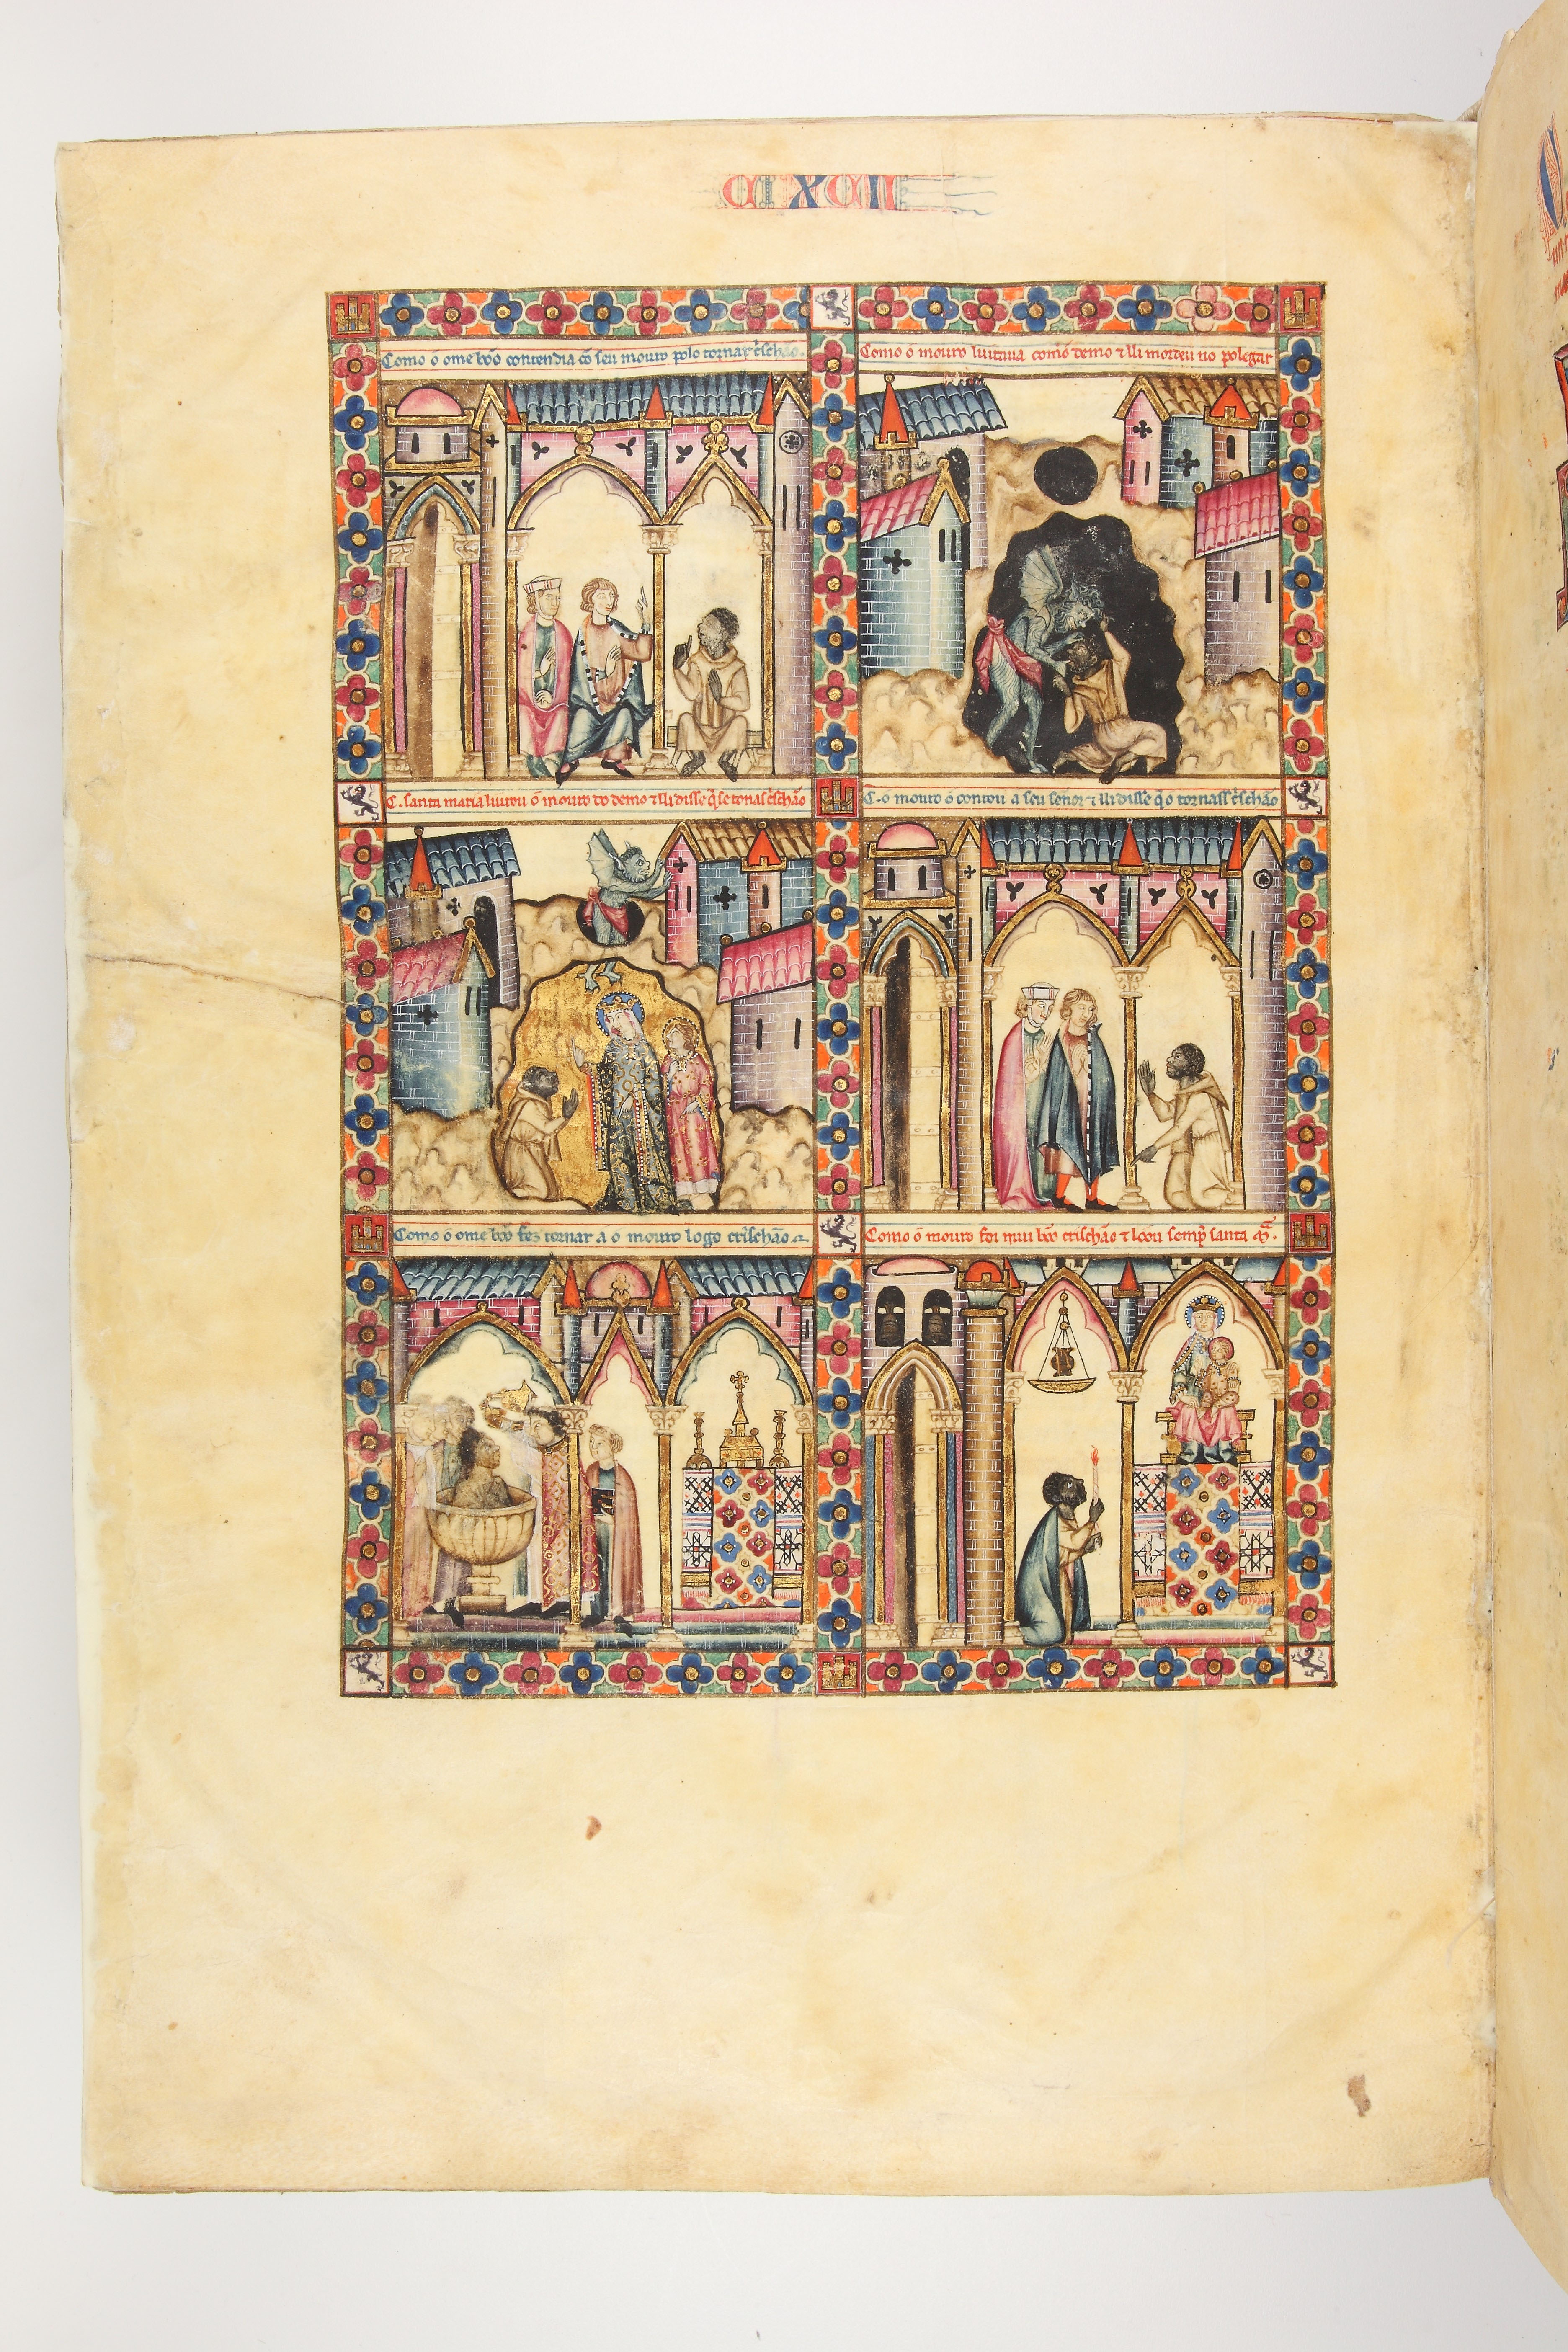 CIXCII
Como o ome bõo contendia cõ seu mouro polo tornar c̃schão.
Como o mouro luitaua comõ demo ⁊ lli mordeu no polegar
C. santa maria liurou õ mouro do demo ⁊ lli disse q̃ se tornas c̃schão
C. o mouro o contou a seu señor ⁊ lli disse q̃ o tornass c̃schão
Como o ome bõo fez tornar a o mouro logo crischão
Como o mouro foi mui bõo crischão ⁊ loou semp̃ santa M̃.